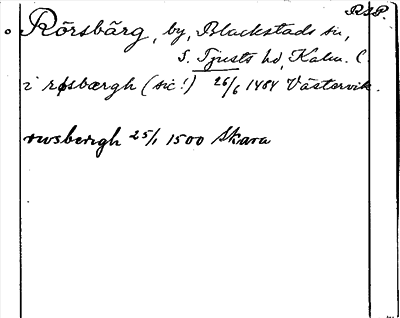 RSP.
Rörsbärg, by, Blackstads sn,
S. Tjusts hd, Kalm. l.
i røsbærgh (sic!) 26/6 1484 Västervik.
rwsbergh 25/1 1500 Skara